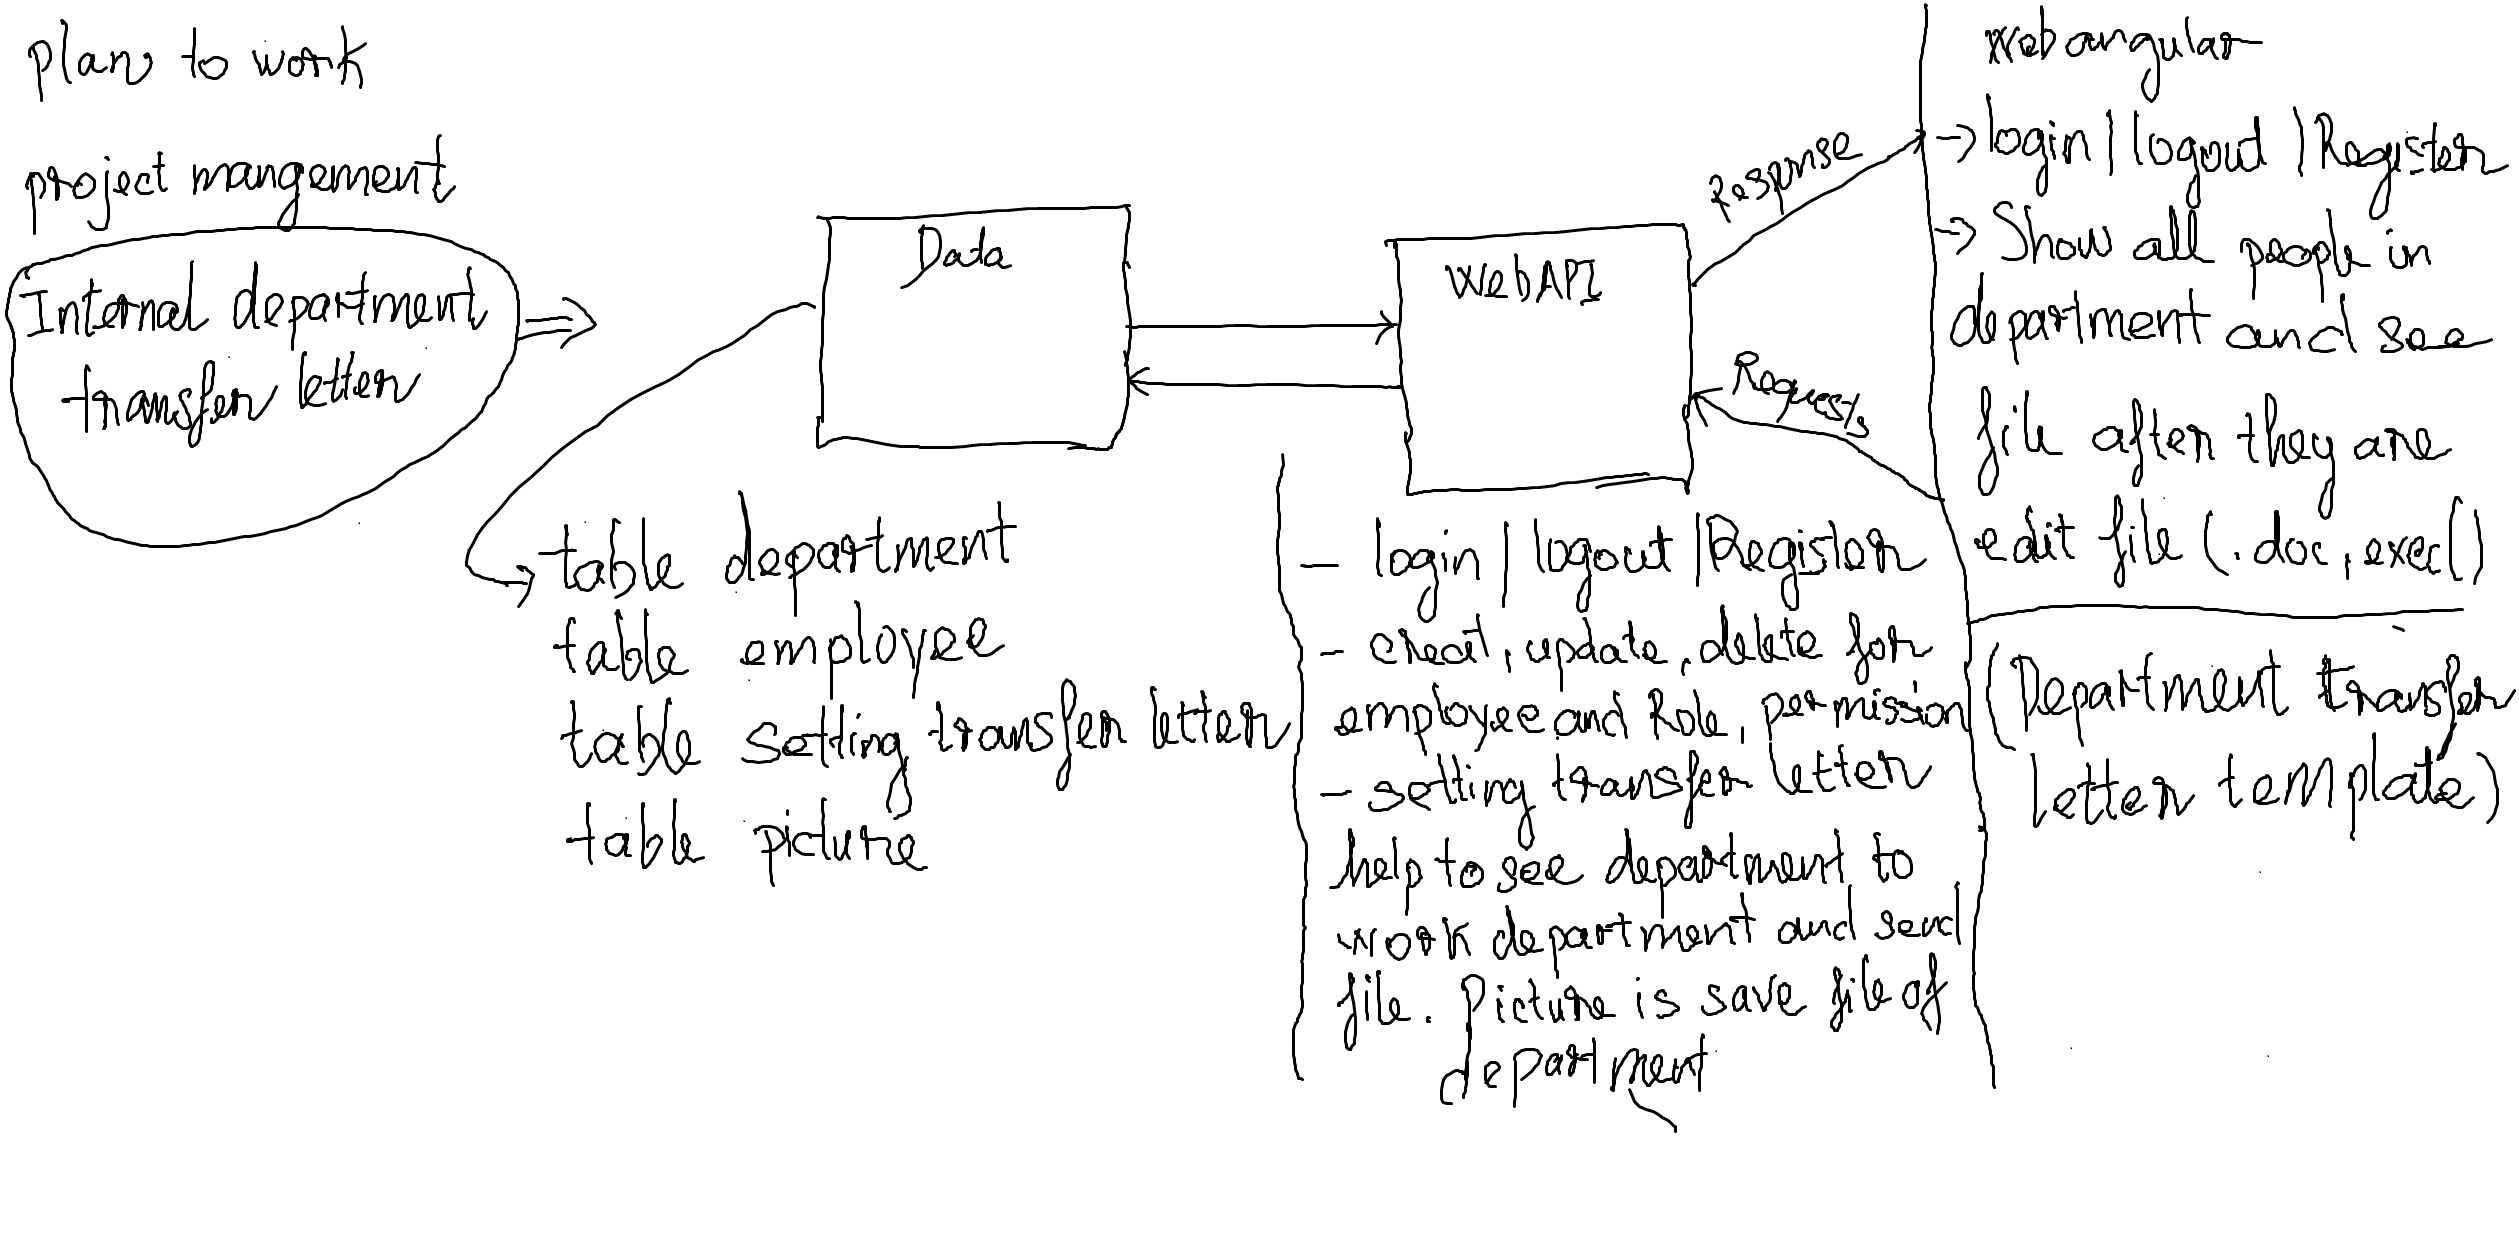 plan to work
project management
Internal department
transfer letter.
Data
WebAPI
Response
Request
table department
table employee
table setting transfer letter.
table picture
- login | logout | Register
- creat, update, delete for
employee and Role, permission
- setting transfer letter
help to see department to
work department and send
file. picture is save file of
department
web angular
→ login | logout | Register
→ Show all people in
department and see
file after they are
edit file (.doc, .excl)
(Department transfer
letter template)